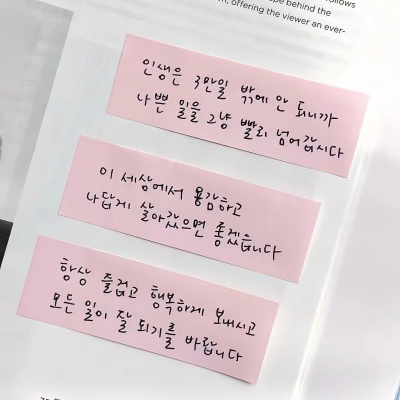 pe behind the
m, offering the viewer an ever-
인생은 3만일 밖에 안 되니까
나쁜 일을 그냥 빨리 넘어갑시다
이 세상에서 용감하고
나답게 살아갔으면 좋겠습니다
항상 즐겁고 행복하게 보내시고
모든 일이 잘 되기를 바랍니다